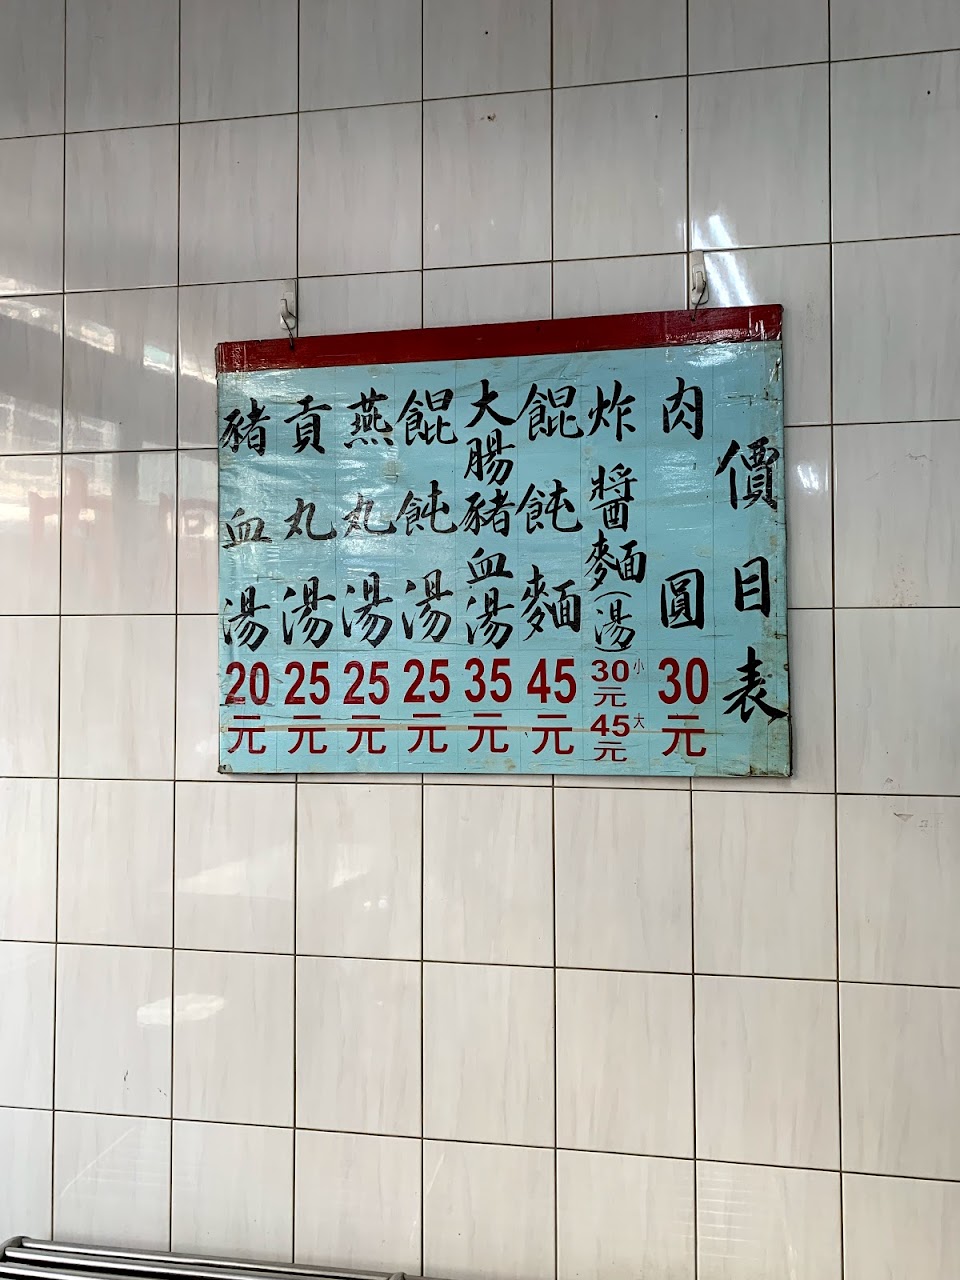 價目表
肉圓 30元
炸醬麵(湯) 30元 小 45元 大
餛飩麵 45元
大腸豬血湯 35元
餛飩湯 25元
燕丸湯 25元
貢丸湯 25元
豬血湯 20元